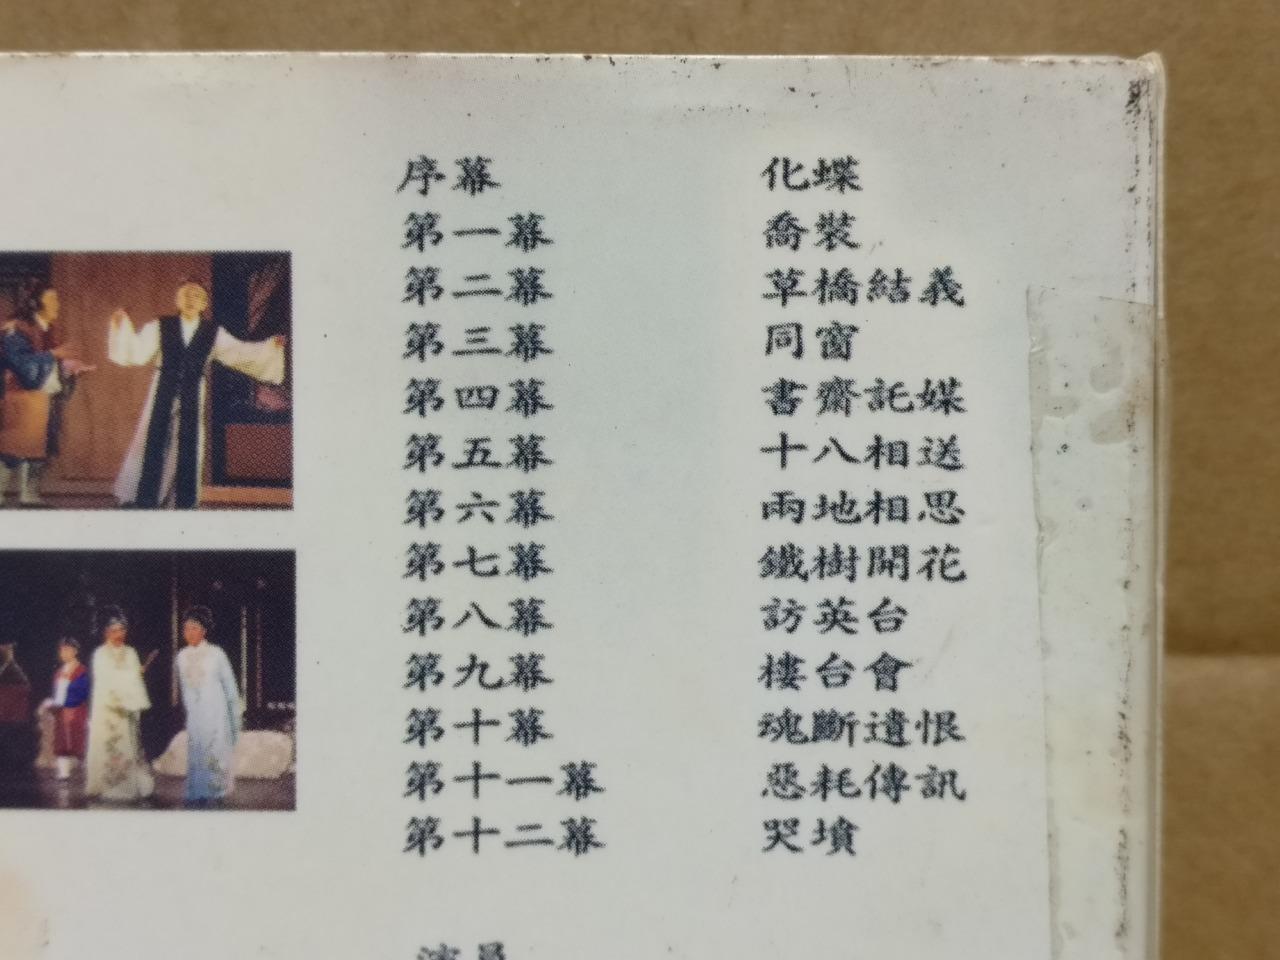 序幕 化蝶
第一幕 喬裝
第二幕 草橋結義
第三幕 同窗
第四幕 書齋託媒
第五幕 十八相送
第六幕 兩地相思
第七幕 鐵樹開花
第八幕 訪英台
第九幕 樓台會
第十幕 魂斷遺恨
第十一幕 惡耗傳訊
第十二幕 哭墳
演員